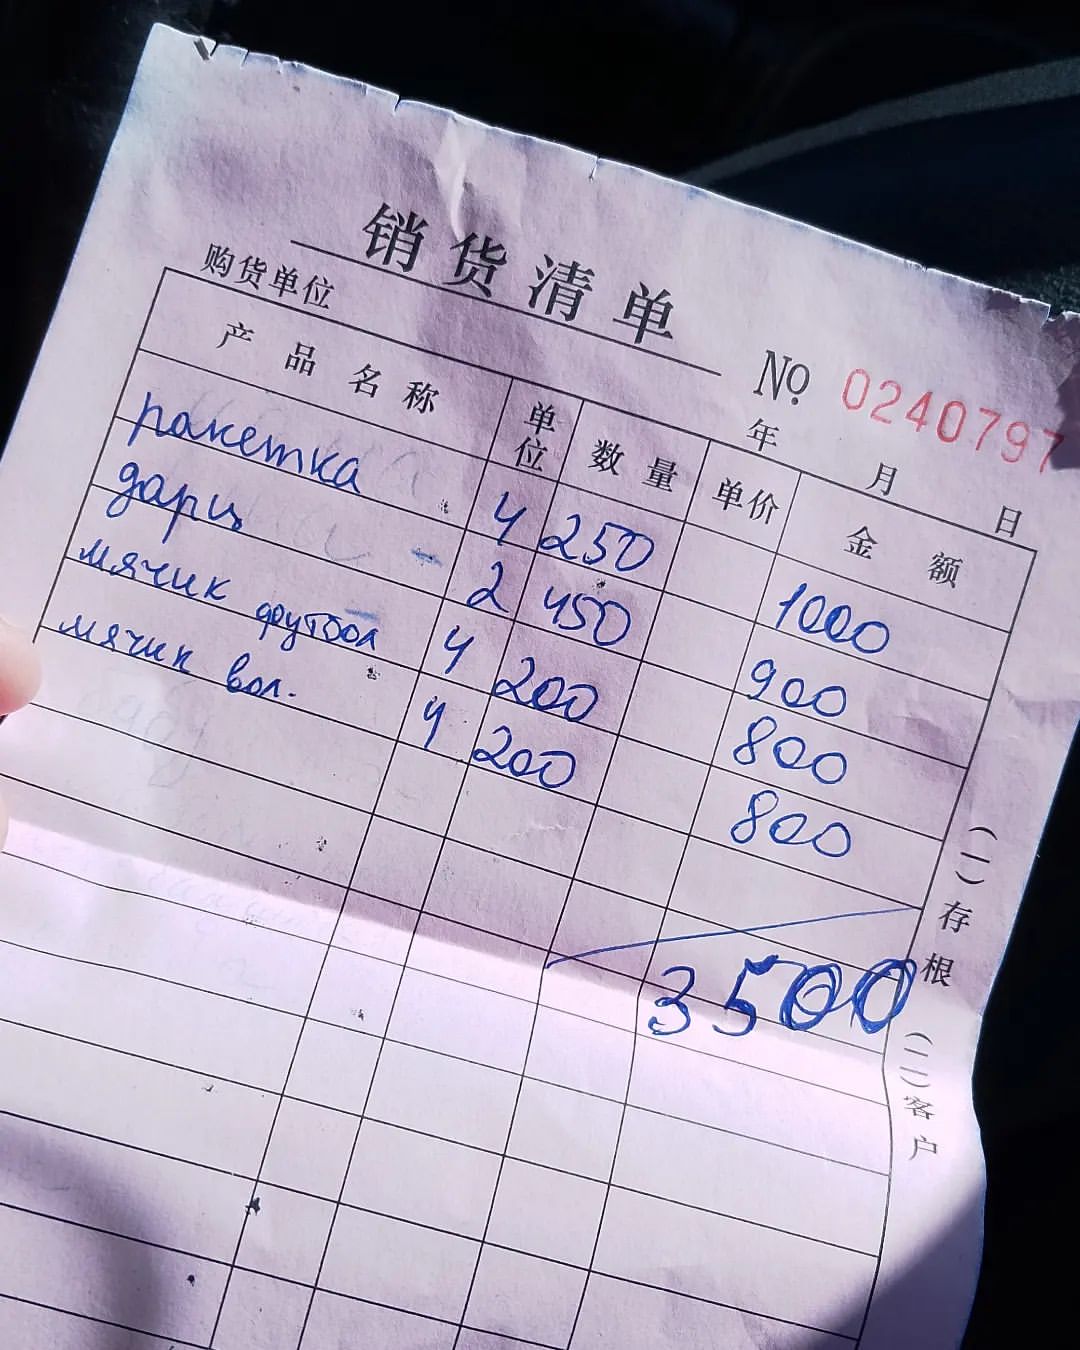 销货清单
购货单位
№ 0240797
年 月 日
产品名称 单位 数量 单价 金额
ракетка 4 250 1000
дарц 2 450 900
мячик футбол 4 200 800
мячик вол. 4 200 800
3500
(一)存根
(二)客户